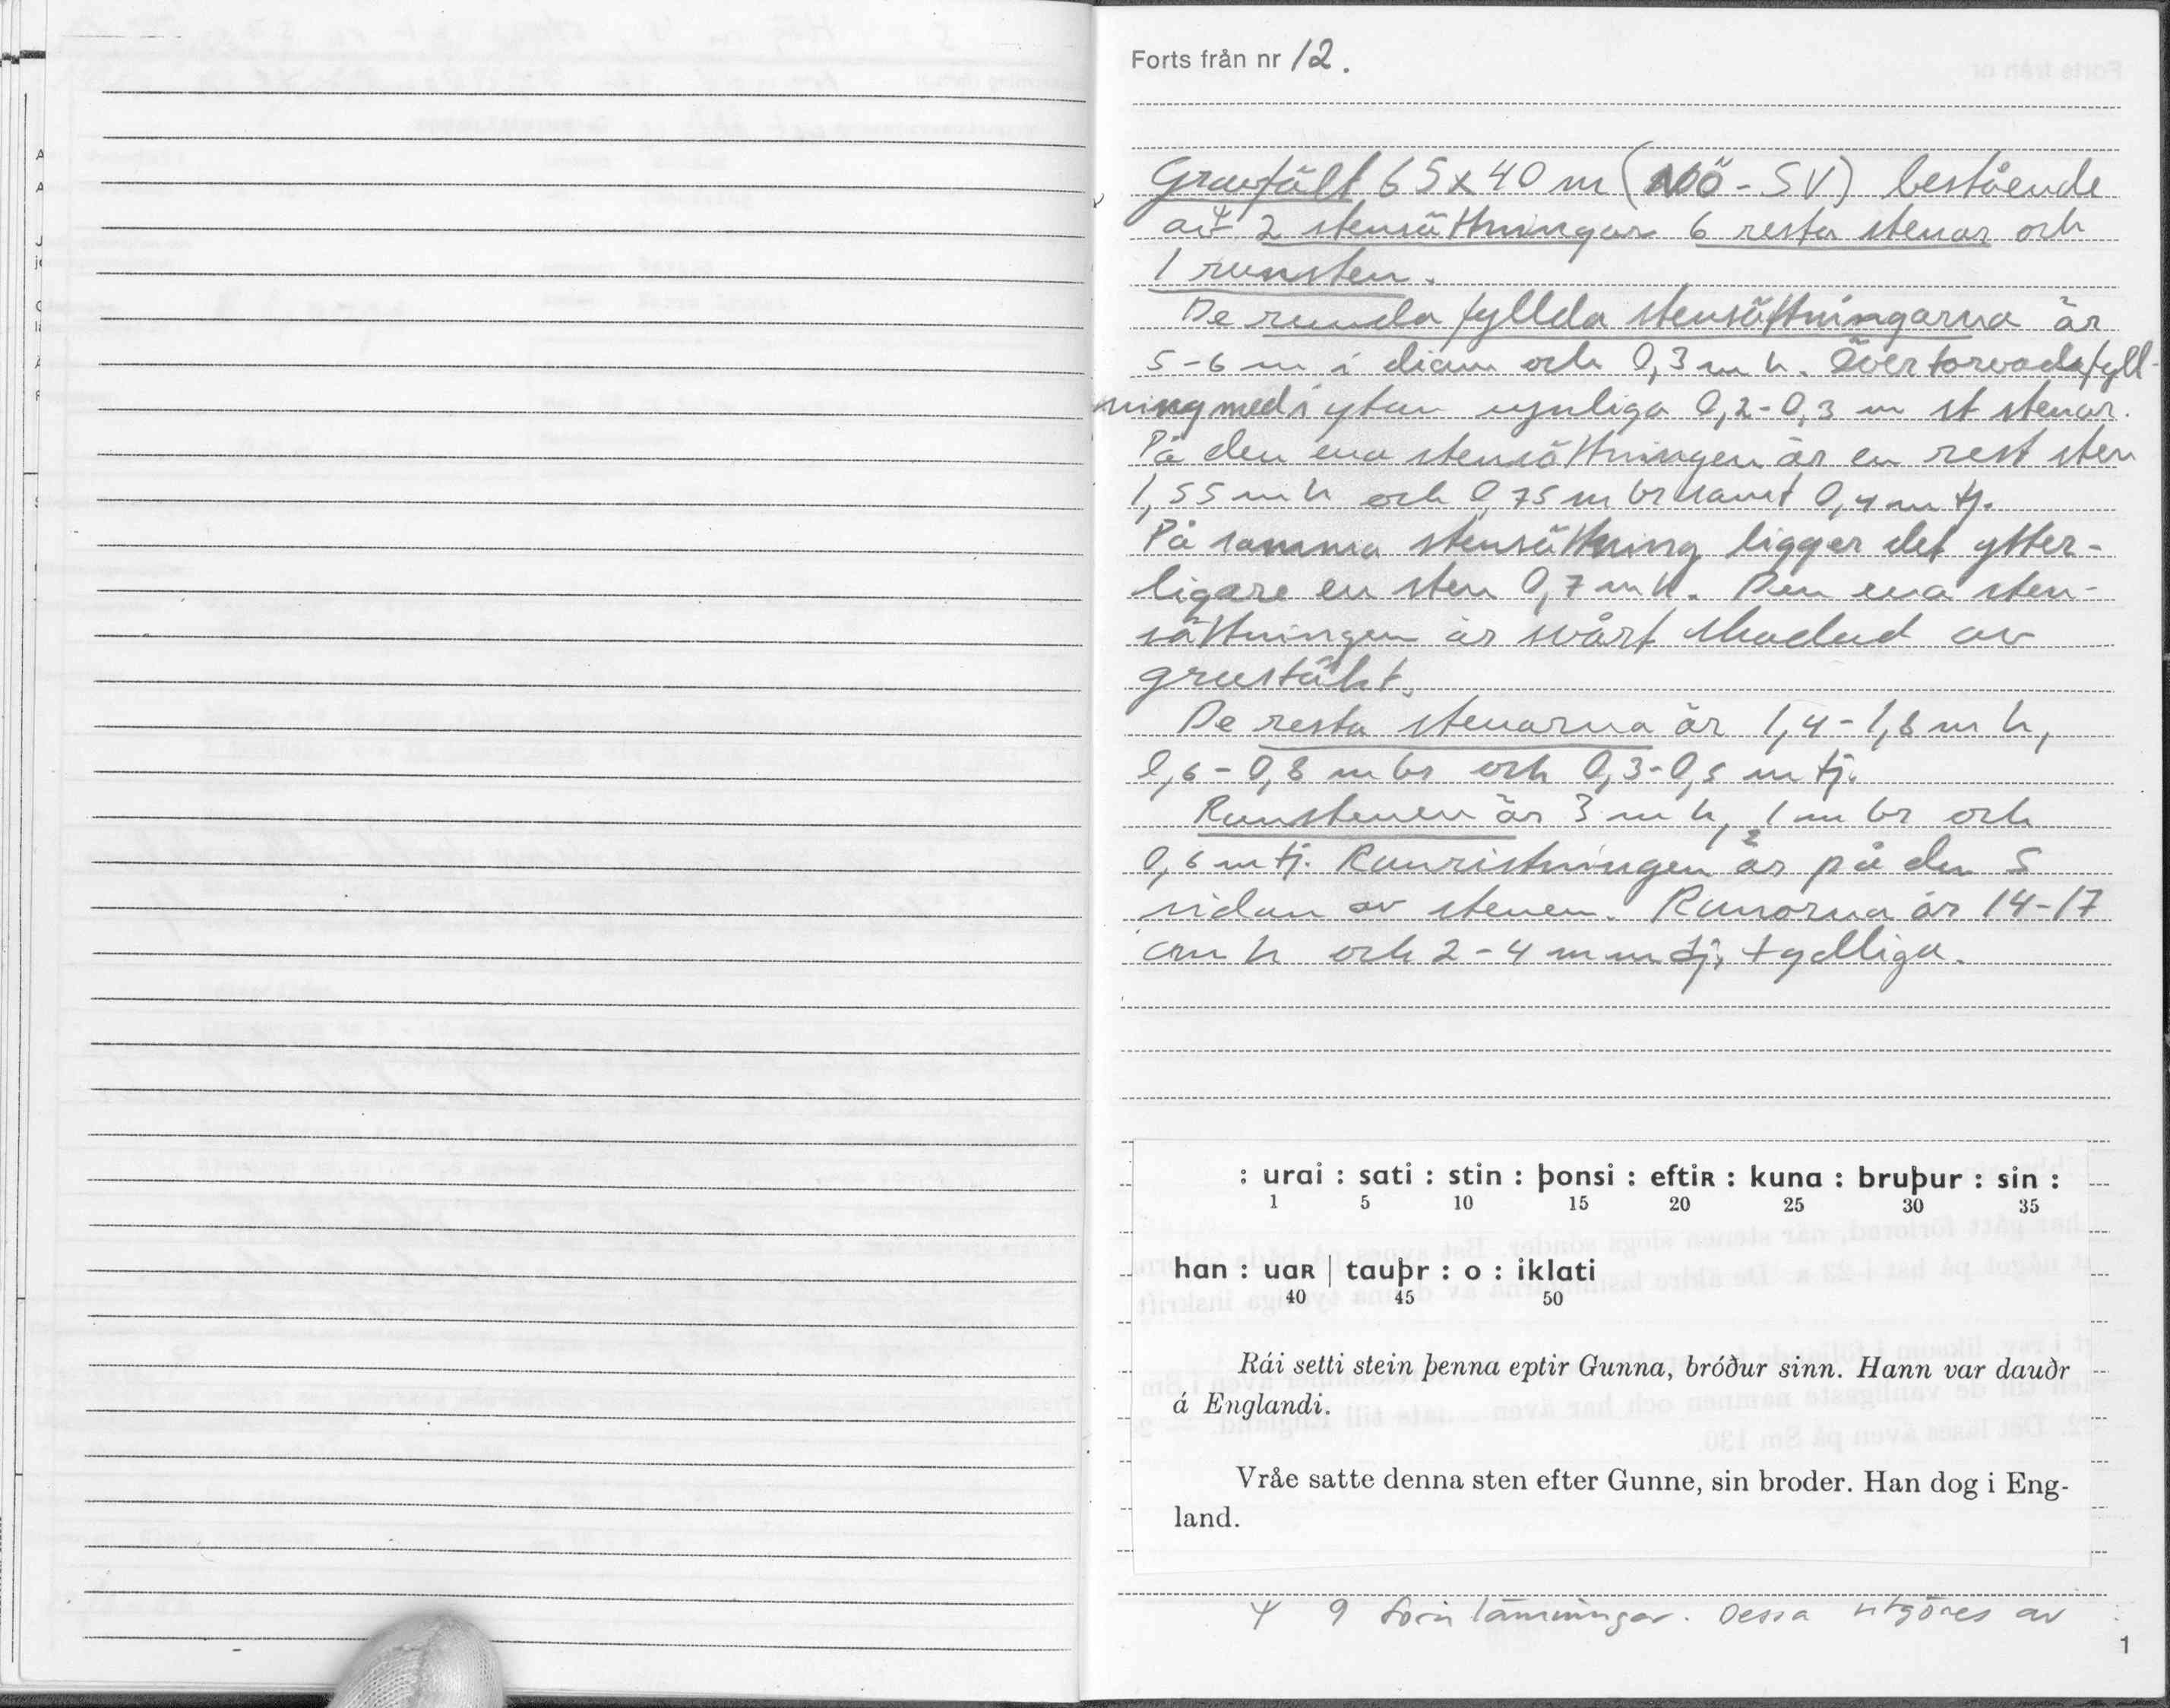 Forts från nr 12.
Gravfält 65x40 m (NÖ-SV) bestående
av 2 stensättningar 6 resta stenar och
1 runsten.
De runda fyllda stensättningarna är
5-6 m i diam och 0,3 m h. Övertorvad fyll-
ning med i ytan synliga 0,2-0,3 m st stenar.
På den ena stensättningen är en rest sten
1,55 m h och 0,75 m br samt 0,4 m tj.
På samma stensättning ligger det ytter-
ligare en sten 0,7 m h. Den ena sten-
sättningen är svårt skadad av
grustäkt.
De resta stenarna är 1,4-1,8 m h,
0,6-0,8 m br och 0,3-0,5 m tj.
Runstenen är 3 m h, 1 m br och
0,6 m tj. Runristningen är på den S
sidan av stenen. Runorna är 14-17
cm h och 2-4 mm dj, tydliga.
: urai : sati : stin : þonsi : eftiʀ : kuna : bruþur : sin :
1 5 10 15 20 25 30 35
han : uaʀ | tauþr : o : iklati
40 45 50
Rái setti stein þenna eptir Gunna, bróður sinn. Hann var dauðr
á Englandi.
Vråe satte denna sten efter Gunne, sin broder. Han dog i Eng-
land.
9 fornlämningar. Dessa utgöres av
1